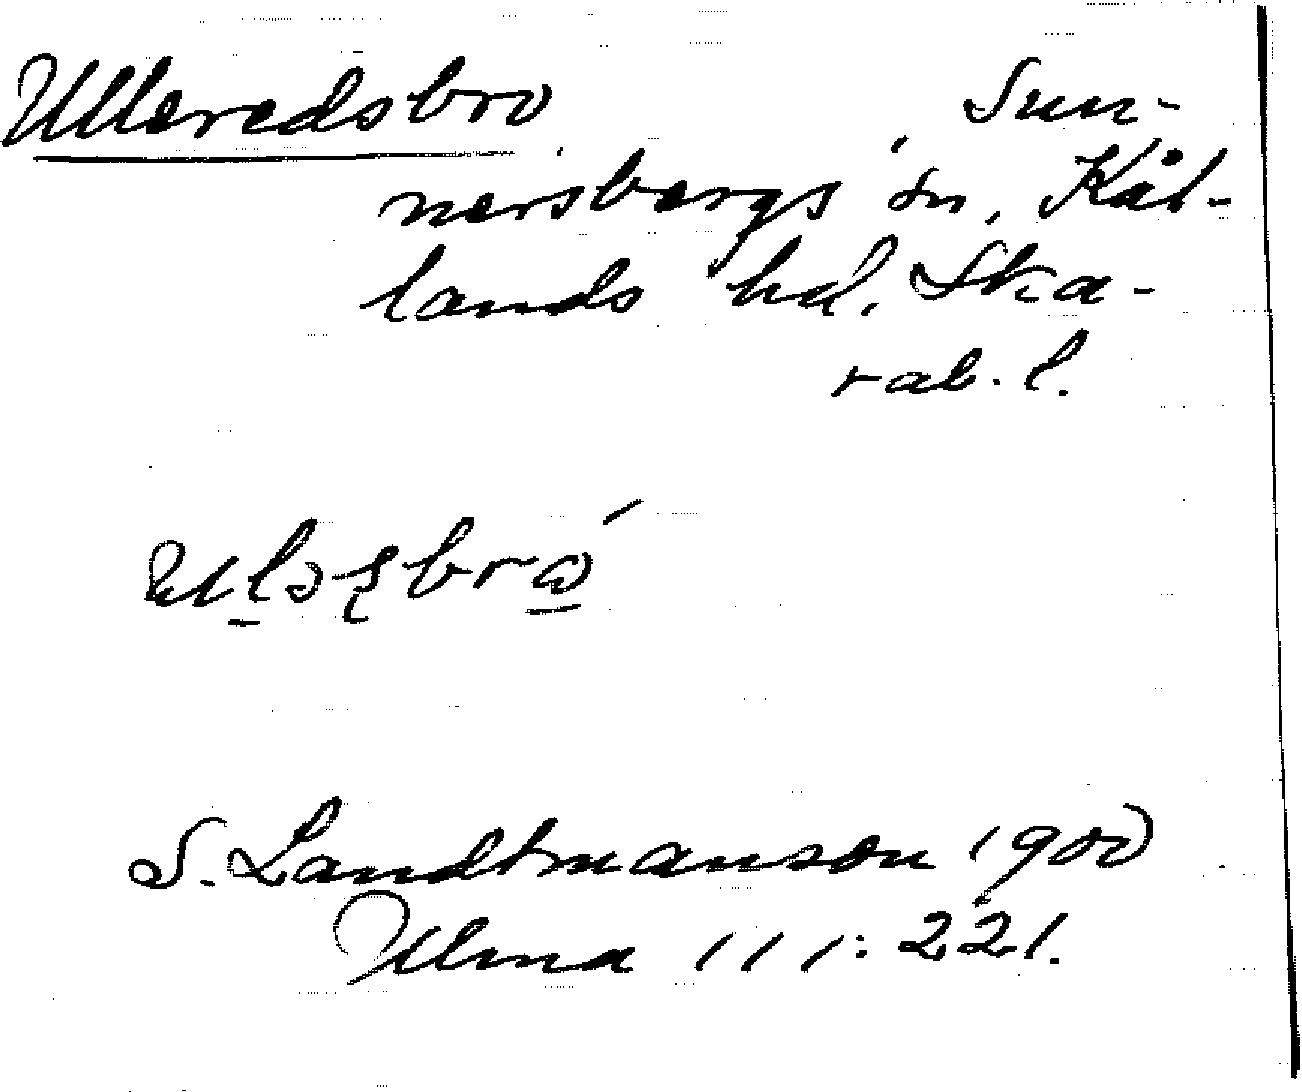 Ulleredsbro Sun-
nersbergs sn, Kål-
lands hd. Ska-
rab. l.
S. Landtmanson 1900
Ulma 111:221.